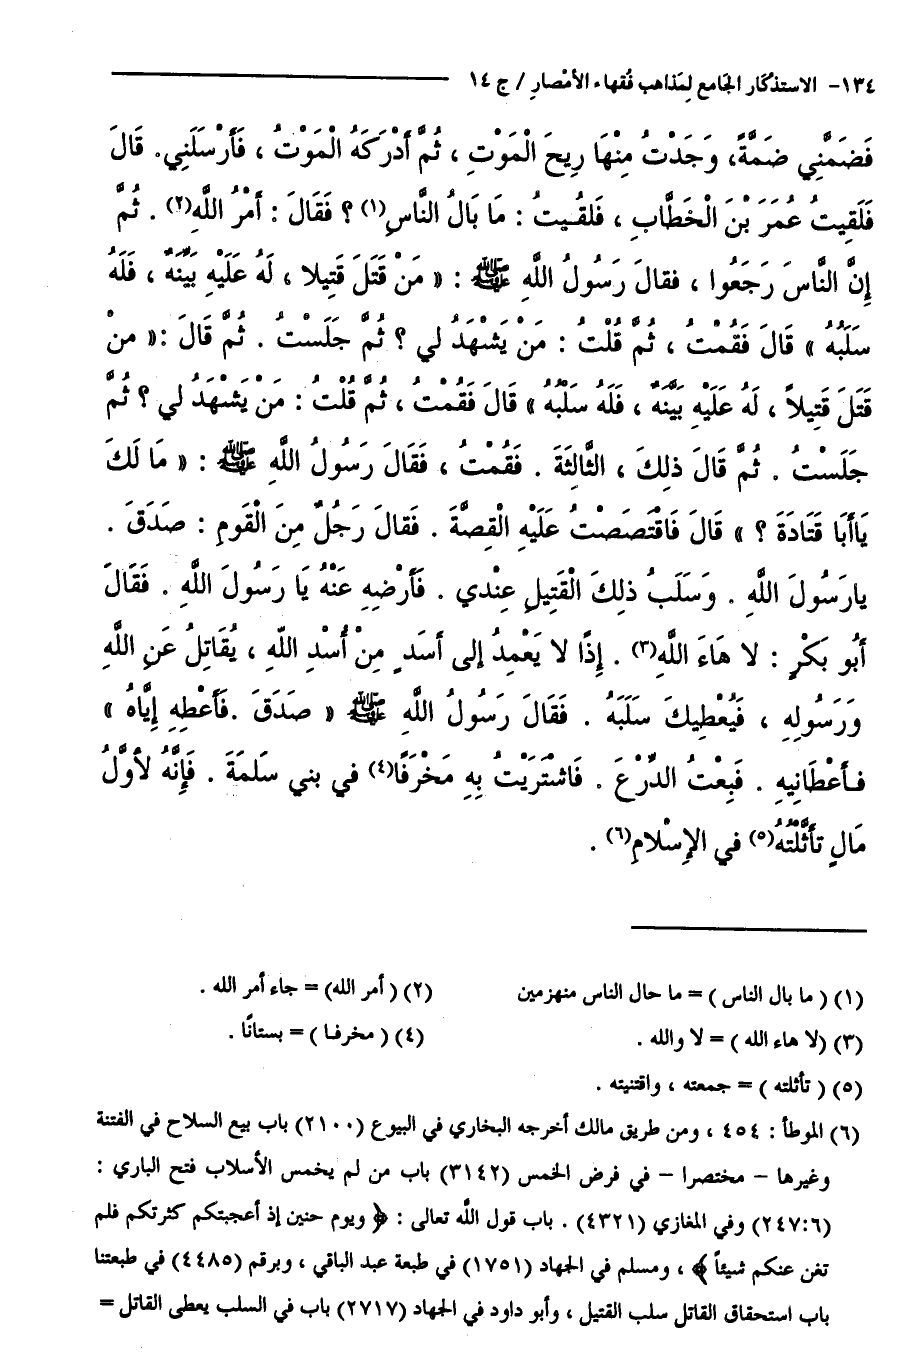 ١٣٤- الاستذكار الجامع لِمَذاهب فُقهاء الأمْصارِ / ج ١٤
فَضَمَّنِي ضَمَّةً، وَجَدْتُ مِنْهَا رِيحَ الْمَوْتِ ، ثُمَّ أَدْرَكَهُ الْمَوْتُ ، فَأَرْسَلَنِي. قَالَ
فَلَقِيتُ عُمَرَ بْنَ الْخَطَّابِ ، فَلقُـيتُ : مَا بَالُ النَّاسِ(١) ؟ فَقَالَ : أَمْرُ اللَّهِ(٢) . ثُمَّ
إِنَّ النَّاسَ رَجَعُوا ، فقالَ رَسُولُ اللَّهِ ﷺ : « مَنْ قَتَلَ قَتِيلا ، لَهُ عَلَيْهِ بَيِّنَةٌ ، فَلَهُ
سَلَبُهُ » قَالَ فَقُمْتُ ، ثُمَّ قُلْتُ : مَنْ يَشْهَدُ لي ؟ ثُمَّ جَلَستُ . ثُمَّ قَالَ :« منْ
قَتَلَ قَتِيلاً ، لَهُ عَلَيْهِ بَيِّنَةٌ ، فَلَهُ سَلَبُهُ » قَالَ فَقُمْتُ ، ثُمَّ قُلْتُ : مَنْ يَشْهَدُ لي ؟ ثُمَّ
جَلَسْتُ . ثُمَّ قَالَ ذلِكَ ، الثَّالِثَةَ . فَقُمْتُ ، فَقَالَ رَسُولُ اللَّهِ ﷺ : « مَا لَكَ
يَاأَبَا قَتَادَةَ ؟ » قَالَ فَاقْتَصَصْتُ عَلَيْهِ الْقِصَّةَ . فَقالَ رَجُلٌ مِنَ الْقَومِ : صَدَقَ .
يارَسُولَ اللَّهِ . وَسَلَبُ ذلِكَ الْقَتِيلِ عِنْدي . فَأَرْضِهِ عَنْهُ يَا رَسُولَ اللَّهِ . فَقَالَ
أَبُو بَكْرٍ : لا هَاءَ اللَّهِ(٣) . إِذًا لا يَعْمِدُ إلى أسَدٍ مِنْ أُسْدِ اللّهِ ، يُقَاتِلُ عَنِ اللَّهِ
وَرَسُولِهِ ، فَيُعْطِيكَ سَلَبَهُ . فَقَالَ رَسُولُ اللَّهِ ﷺ « صدَقَ .فَأَعْطِهِ إِيَّاهُ »
فـأَعْطَانِيهِ . فَبِعْتُ الدِّرْعَ . فَاشْتَرَيْتُ بِهِ مَخْرَفًا(٤) في بني سَلمَةَ . فَإِنَّهُ لأوَّلُ
مَالٍ تأَثَّلْتُهُ(٥) في الإِسْلامِ(٦) .
(١) ( ما بال الناس ) = ما حال الناس منهزمين (٢) ( أمر الله) = جاء أمر الله .
(٣) (لا هاء الله ) = لا والله . (٤) ( مخرفـا ) = بستانًا .
(٥) ( تأثلته ) = جمعته ، واقتنيته .
(٦) الموطأ : ٤٥٤ ، ومن طريق مالك أخرجه البخاري في البيوع (٢١٠٠) باب بيع السلاح في الفتنة
وغيرها - مختصرا - في فرض الخمس (٣١٤٢) باب من لم يخمس الأسلاب فتح الباري :
(٢٤٧:٦) وفي المغازي (٤٣٢١) . باب قول اللّه تعالى : ﴿ ويوم حنين إذ أعجبتكم كثرتكم فلم
تغن عنكم شيئاً ﴾ ، ومسلم في الجهاد (١٧٥١) في طبعة عبد الباقي ، وبرقم (٤٤٨٥) في طبعتنا
باب استحقاق القاتل سلب القتيل ، وأبو داود في الجهاد (٢٧١٧) باب في السلب يعطى القاتل =